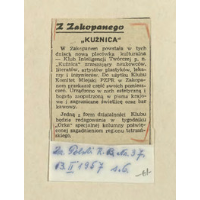 Z Zakopanego
„KUŹNICA"
W Zakopanem powstała w tych
dniach nowa placówka kulturalna
— Klub Inteligencji Twórczej p. n.
„Kuźnica" zrzeszający naukowców,
literatów, artystów plastyków, lekarzy
i inżynierów. Do użytku Klubu
Komitet Miejski PZPR w Zakopanem
przekazał część swoich pomieszczeń.
Urządzono w nich estetyczną i
bogato zaopatrzoną w pisma krajowe
i zagraniczne świetlicę oraz bar
kawowy.
Jedną z form działalności Klubu
będzie redagowanie w tygodniku
specjalnej kolumny poświęconej
zagadnieniom regionu tatrzańskiego.
37
1957